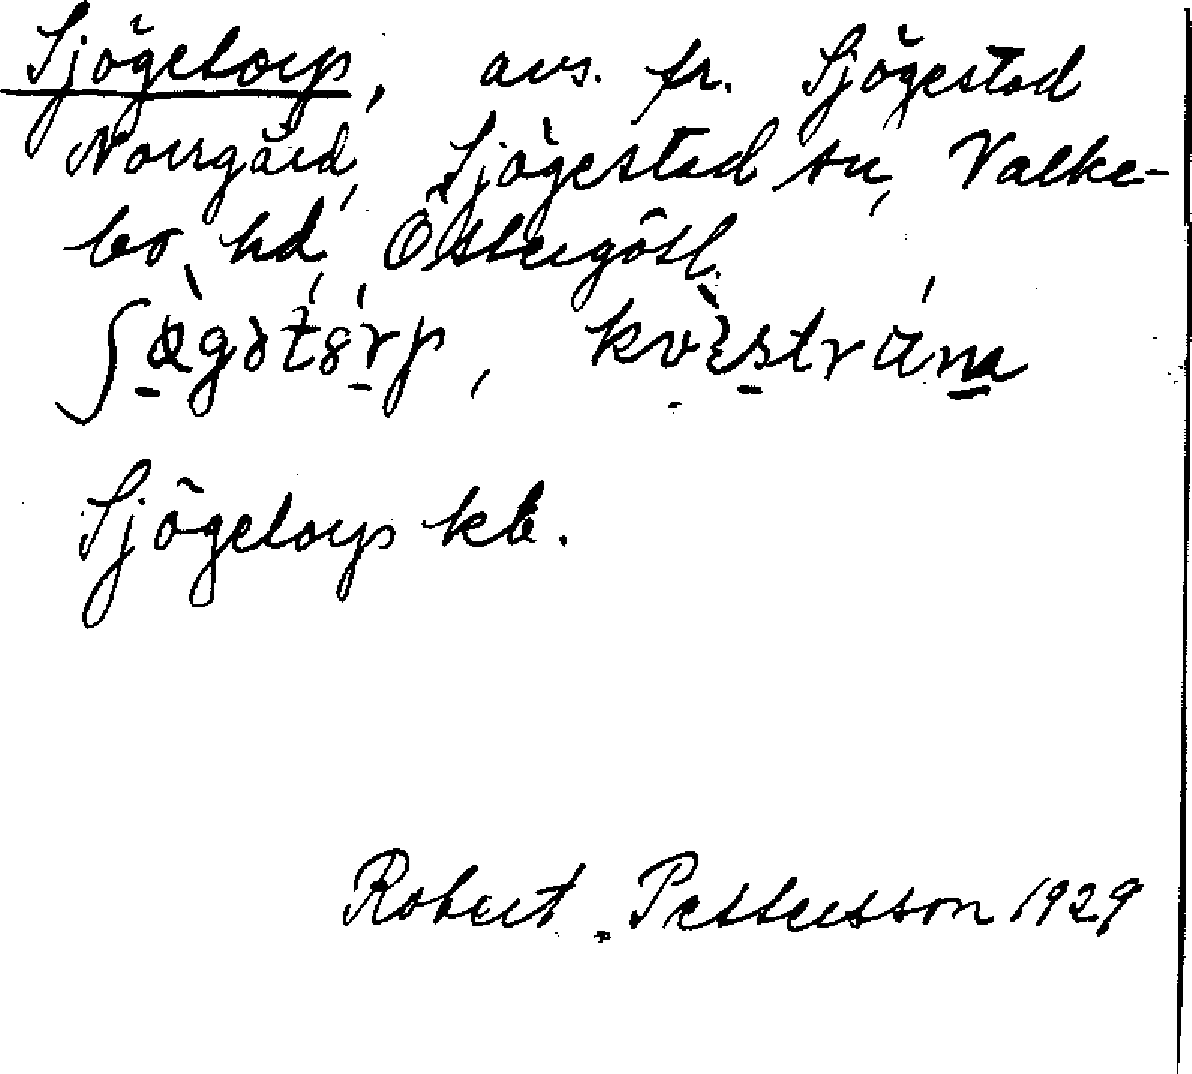 Sjögetorp, avs. fr. Sjögestad
Norrgård, Sjögestad sn, Valke-
bo hd, Östergötl.
Sjögetorp kb.
Robert Pettersson 1929